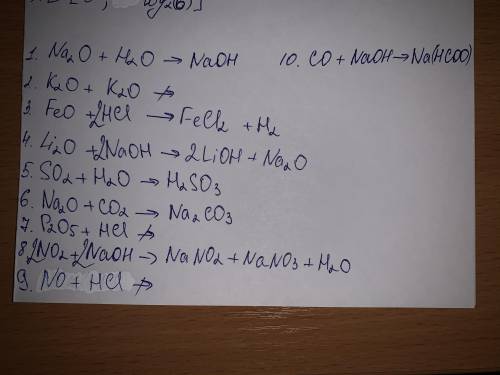 1. Na₂O + H₂O → NaOH
10. CO + NaOH → Na(HCOO)
2. K₂O + K₂O ↛
3. FeO + 2HCl → FeCl₂ + H₂
4. Li₂O + 2NaOH → 2LiOH + Na₂O
5. SO₂ + H₂O → H₂SO₃
6. Na₂O + CO₂ → Na₂CO₃
7. P₂O₅ + HCl ↛
8. 2NO₂ + 2NaOH → NaNO₂ + NaNO₃ + H₂O
9. NO + HCl ↛